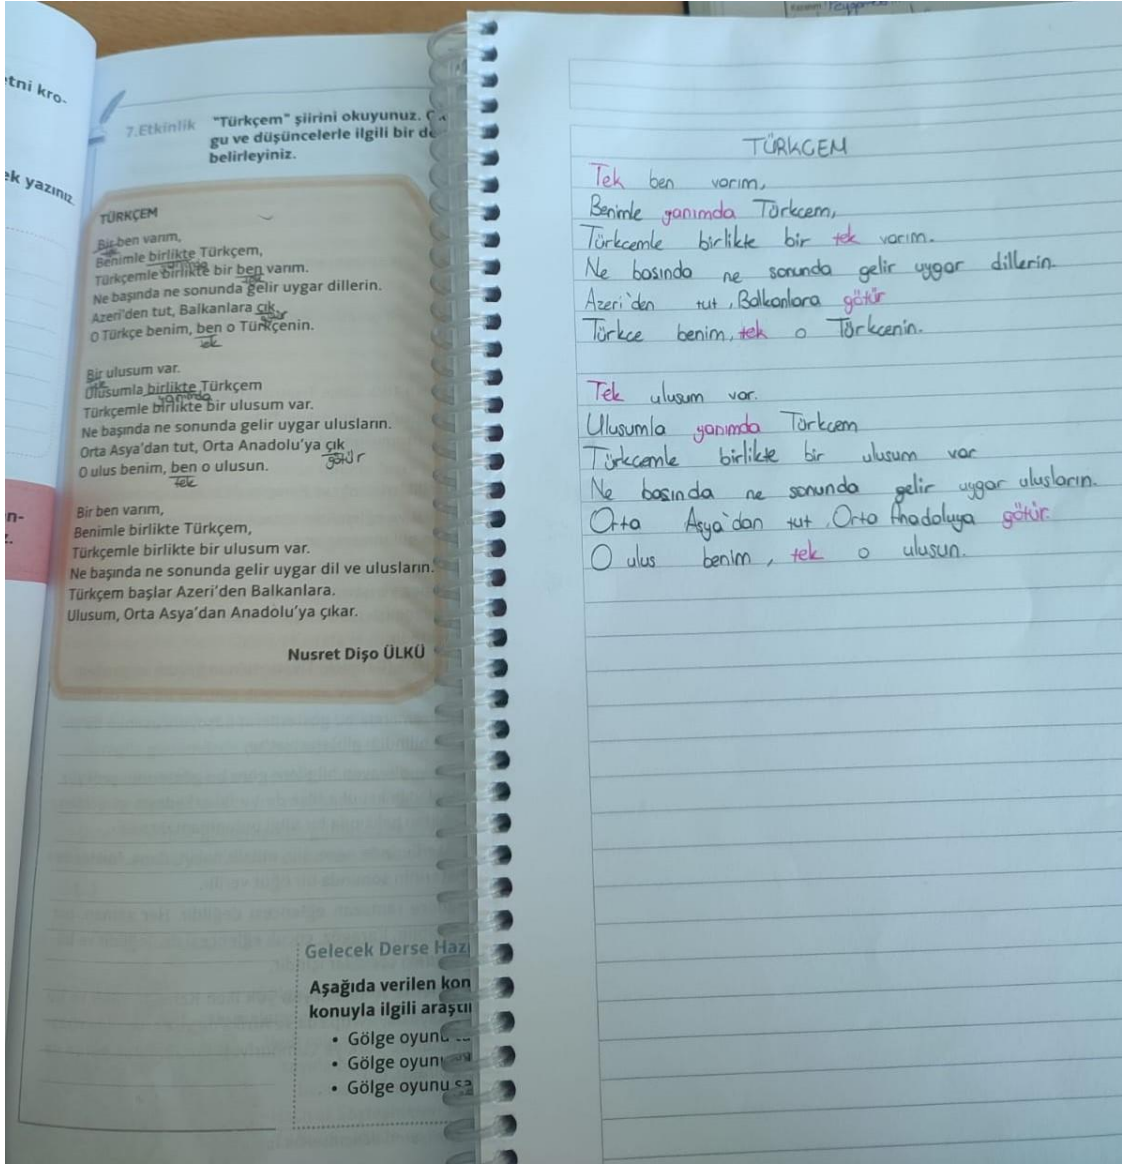 etni kro-
ek yazınız.
n-
z.
7.Etkinlik "Türkçem" şiirini okuyunuz.
gu ve düşüncelerle ilgili bir de
belirleyiniz.
TÜRKÇEM
Bir ben varım,
tek
Benimle birlikte Türkçem,
yanımda
Türkçemle birlikte bir ben varım.
tek
Ne başında ne sonunda gelir uygar dillerin.
Azeri'den tut, Balkanlara çık
götür
O Türkçe benim, ben o Türkçenin.
tek
Bir ulusum var.
tek
Ulusumla birlikte Türkçem
yanımda
Türkçemle birlikte bir ulusum var.
Ne başında ne sonunda gelir uygar ulusların.
Orta Asya'dan tut, Orta Anadolu'ya çık
götür
O ulus benim, ben o ulusun.
tek
Bir ben varım,
Benimle birlikte Türkçem,
Türkçemle birlikte bir ulusum var.
Ne başında ne sonunda gelir uygar dil ve ulusların.
Türkçem başlar Azeri'den Balkanlara.
Ulusum, Orta Asya'dan Anadolu'ya çıkar.
Nusret Dişo ÜLKÜ
Gelecek Derse Hazı
Aşağıda verilen kon
konuyla ilgili araştır
• Gölge oyunu
• Gölge oyunu
• Gölge oyunu sa
TÜRKCEM
Tek ben varım,
Benimle yanımda Türkcem,
Türkcemle birlikte bir tek varım.
Ne basında ne sonunda gelir uygar dillerin.
Azeri'den tut, Balkanlara götür
Türkce benim, tek o Türkcenin.
Tek ulusum var.
Ulusumla yanımda Türkcem
Türkcemle birlikte bir ulusum var
Ne basında ne sonunda gelir uygar ulusların.
Orta Asya'dan tut, Orta Anadoluya götür.
O ulus benim, tek o ulusun.